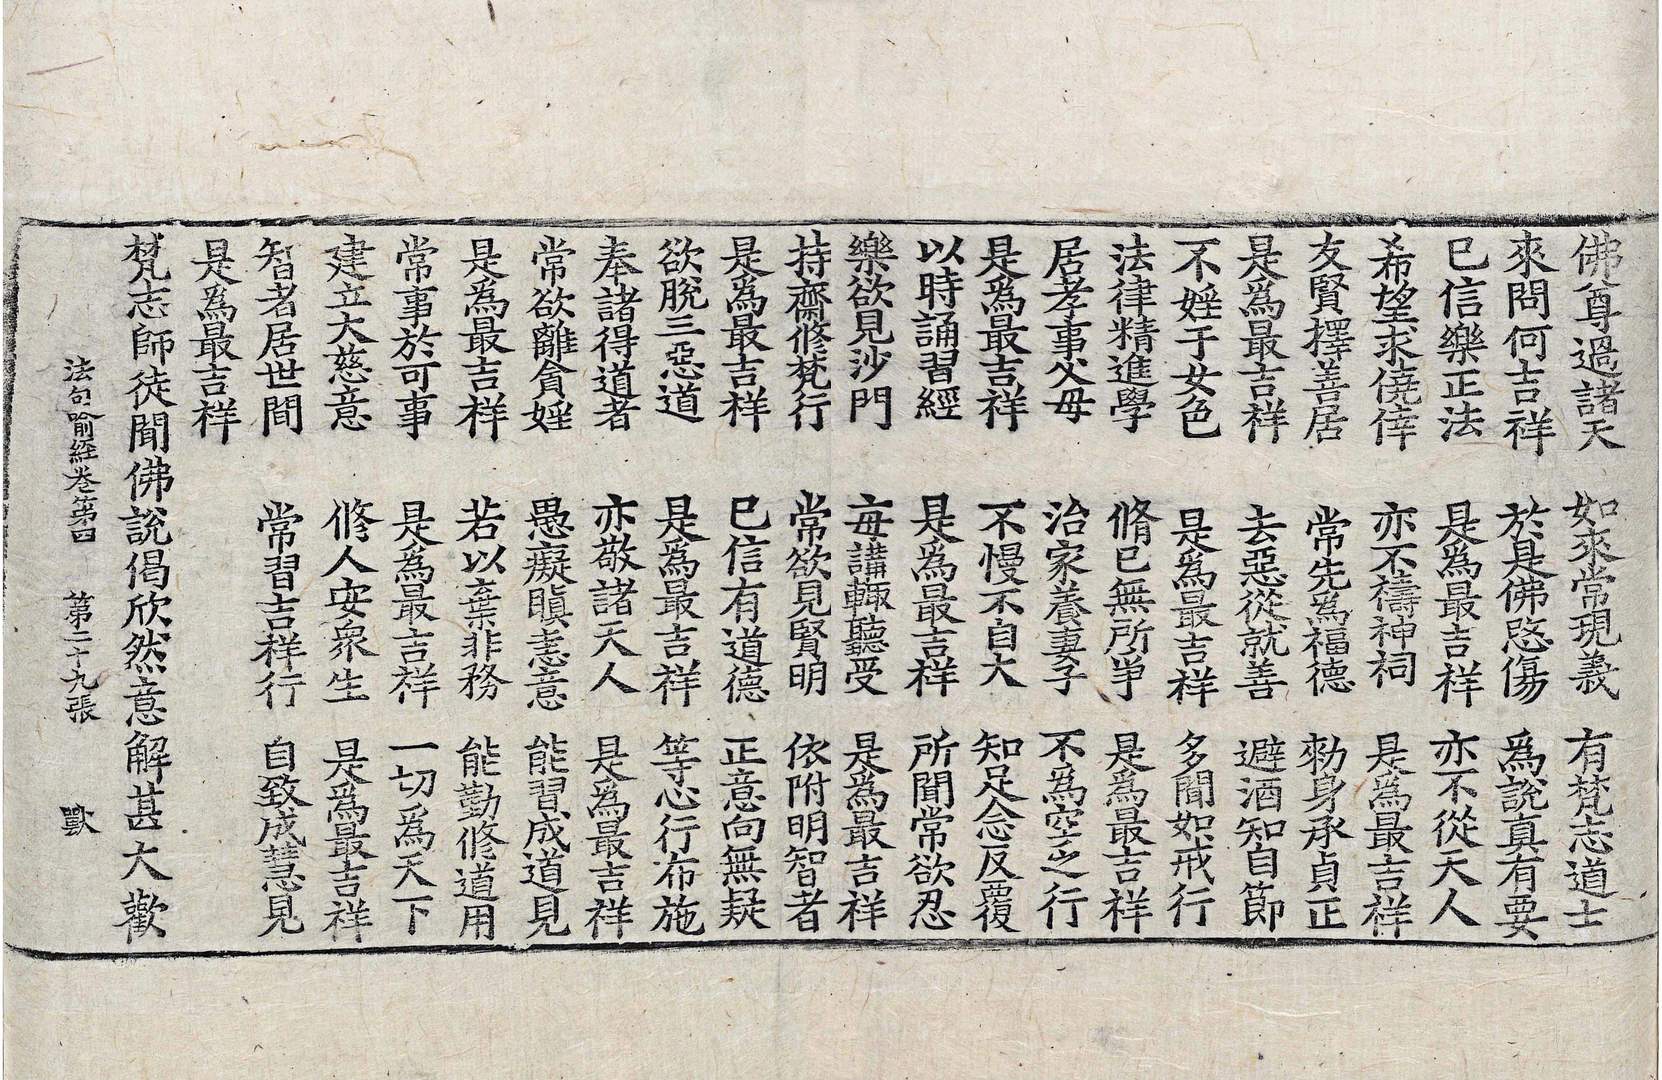 佛尊過諸天　如來常現義　有梵志道士
來問何吉祥　於是佛愍傷　爲說真有要
已信樂正法　是爲最吉祥　亦不從天人
希望求僥倖　亦不禱神祠　是爲最吉祥
友賢擇善居　常先爲福德　勑身承貞正
是爲最吉祥　去惡從就善　避酒知自節
不婬于女色　是爲最吉祥　多聞如戒行
法律精進學　脩已無所爭　是爲最吉祥
居孝事父母　治家養妻子　不爲空之行
是爲最吉祥　不慢不自大　知足念反覆
以時誦習經　是爲最吉祥　所聞常欲忍
樂欲見沙門　每講輙聽受　是爲最吉祥
持齋修梵行　常欲見賢明　依附明智者
是爲最吉祥　已信有道德　正意向無疑
欲脫三惡道　是爲最吉祥　等心行布施
奉諸得道者　亦敬諸天人　是爲最吉祥
常欲離貪婬　愚癡瞋恚意　能習成道見
是爲最吉祥　若以棄非務　能勤修道用
常事於可事　是爲最吉祥　一切爲天下
建立大慈意　修人安衆生　是爲最吉祥
智者居世間　常習吉祥行　自致成慧見
是爲最吉祥
梵志師徒聞佛說偈欣然意解甚大歡
法句喻經卷第四　第二十九張　歐